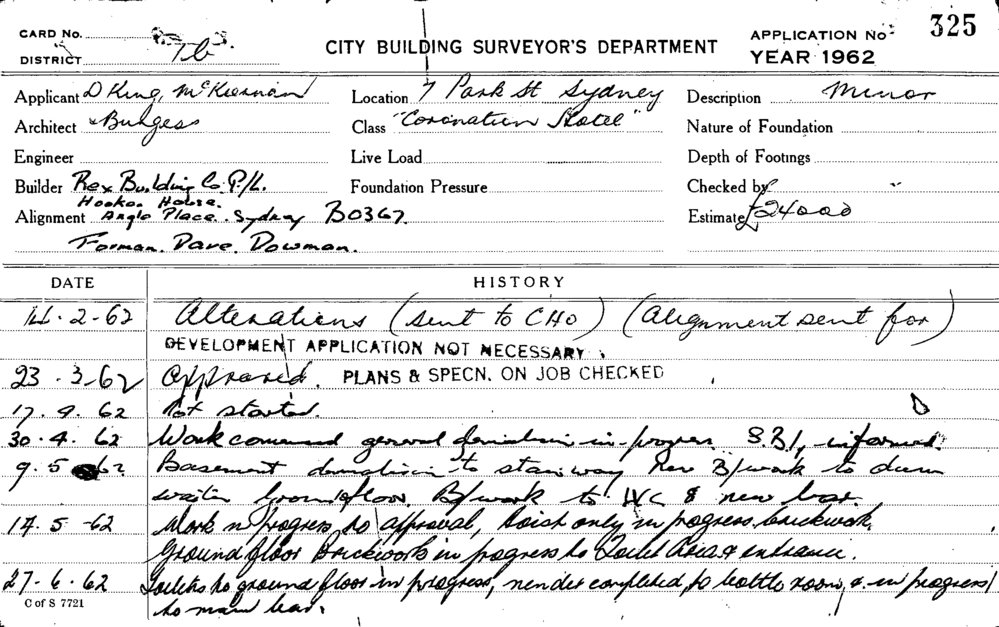 325
CARD No.
CITY BUILDING SURVEYOR'S DEPARTMENT
APPLICATION No.
DISTRICT 7b
YEAR 1962
Applicant D King, McKiernan
Location 7 Park St Sydney
Description Minor
Architect & Burgess
Class "Coronation Hotel"
Nature of Foundation
Engineer
Live Load
Depth of Footings
Builder Rex Building Co. P/L.
Foundation Pressure
Checked by
Hooker House.
Alignment Anglo Place. Sydney B0367.
Estimate £24000
Forman. Dave. Dowman.
DATE HISTORY
14.2-62 Alterations (sent to CHO) (Alignment sent for)
DEVELOPMENT APPLICATION NOT NECESSARY
23.3-62 Approved. PLANS & SPECN. ON JOB CHECKED
17.4.62 Not started.
30.4.62 Work commenced general demolition in progress S.B.I. informed.
9.5.62 Basement demolition to stairway New B/work to dumb
waiter Ground floor. B/work to WC & new bar.
14.5-62 Work in progress to approval, hoist only in progress brickwork.
Ground floor Brickwork in progress to Toilet area & entrance.
27.6.62 Toilets to ground floor in progress, render completed to bottle room, & in progress
C of S 7721
to main bar.